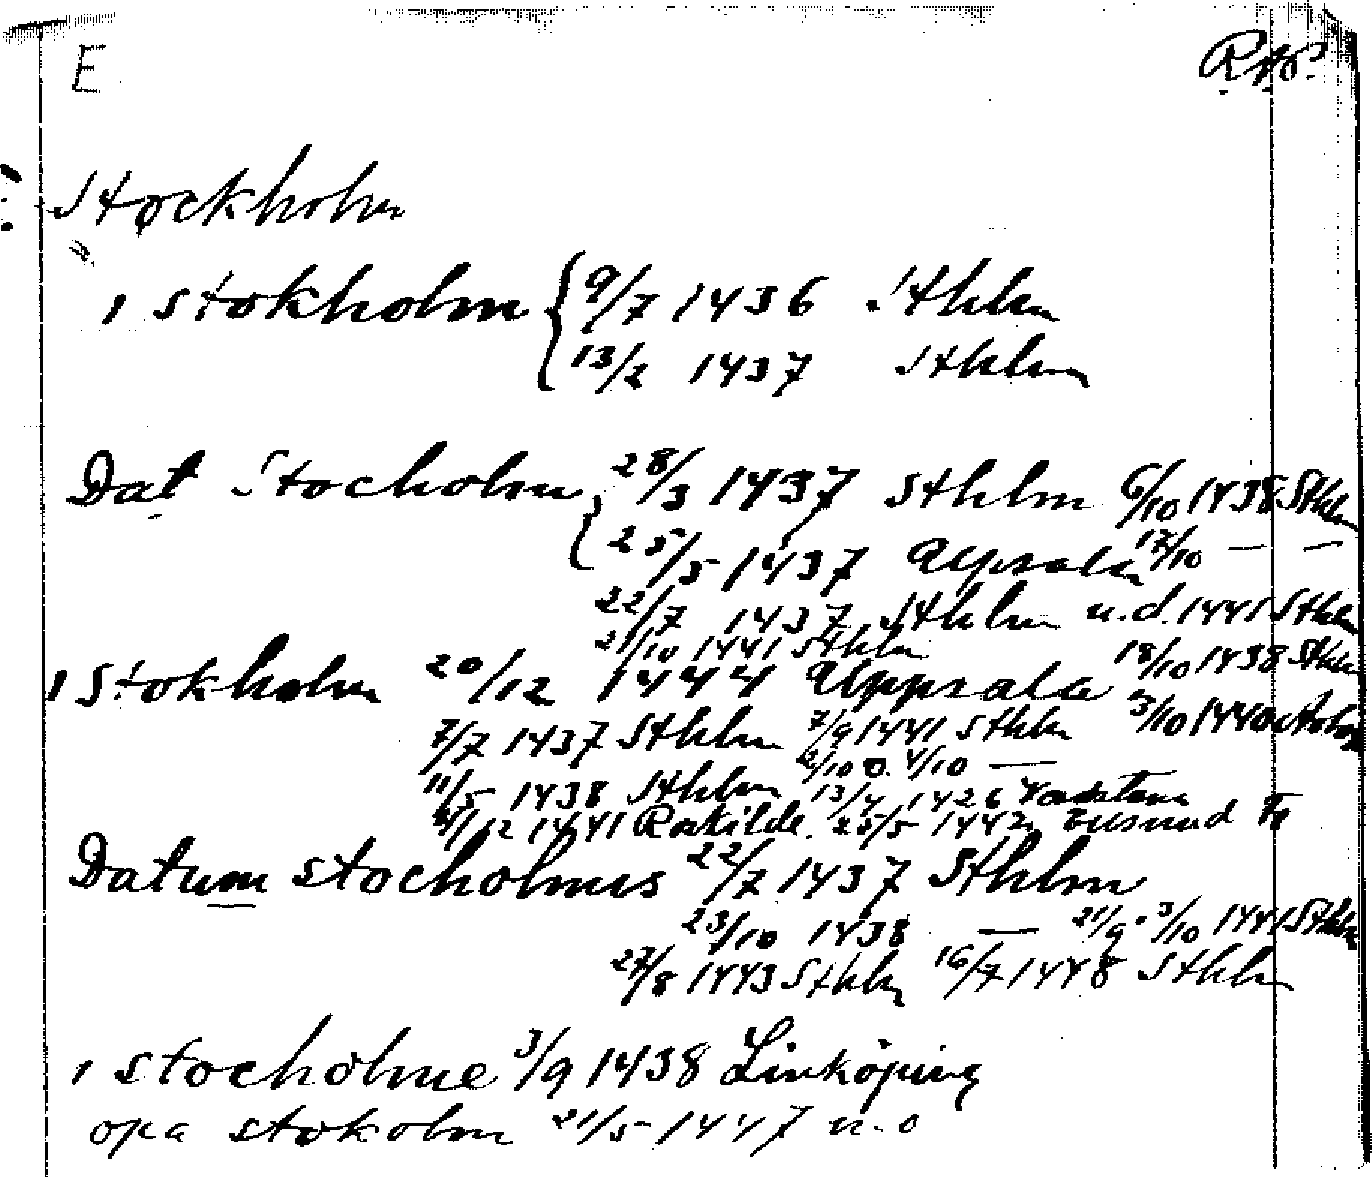 E
Stockholm
"
i stokholm { 9/7 1436 Sthlm
13/2 1437 Sthlm
Dat Stocholm { 28/3 1437 Sthlm 6/10 1438 Sthlm
25/5 1437 Uppsala 17/10 — —
22/7 1437 Sthlm u.d. 1441 Sthlm
21/10 1441 Sthlm 18/10 1438 Sthlm
i Stokholm 20/12 1444 Uppsala 3/10 1440
7/7 1437 Sthlm 7/9 1441 Sthlm
11/5 1438 Sthlm 2/10 o. 4/10 —
13/4 1426 Vadstena
1441 Roskilde. 25/5 1442
Datum stocholmis 22/7 1437 Sthlm
23/10 1438 — 21/9. 3/10 1441 Sthlm
27/8 1443 Sthlm 16/7 1448 Sthlm
i stocholme 3/9 1438 Linköping
opa stokolm 21/5 1447 u. o